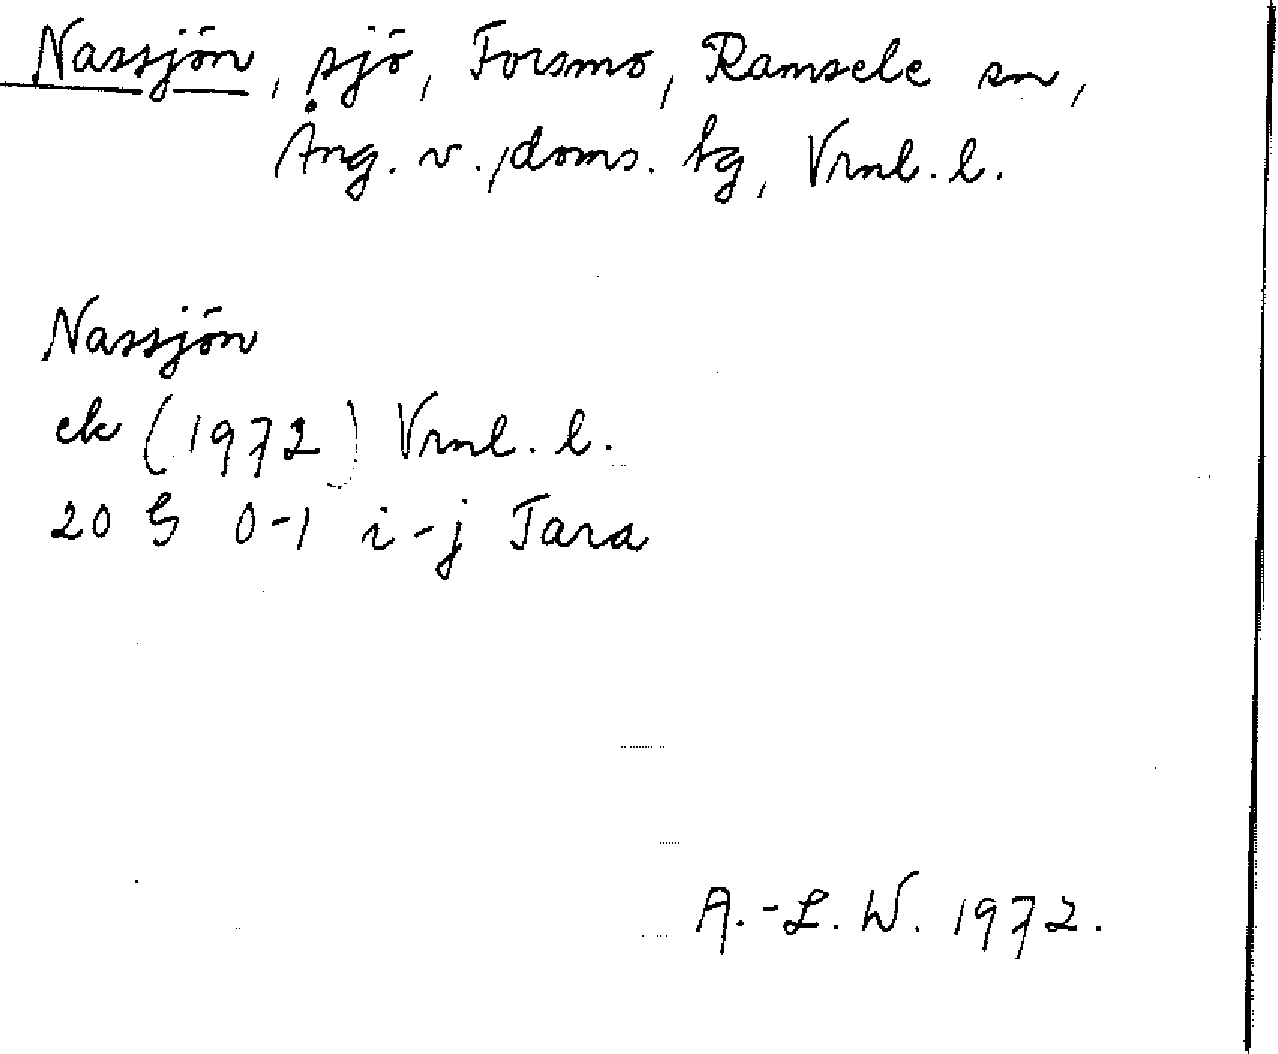 Nassjön, sjö, Forsmo, Ramsele sn,
Ång. v., doms. tg, Vrnl. l.
Nassjön
ek (1972) Vrnl. l.
20 G 0-1 i-j Tara
A.-L. W. 1972.